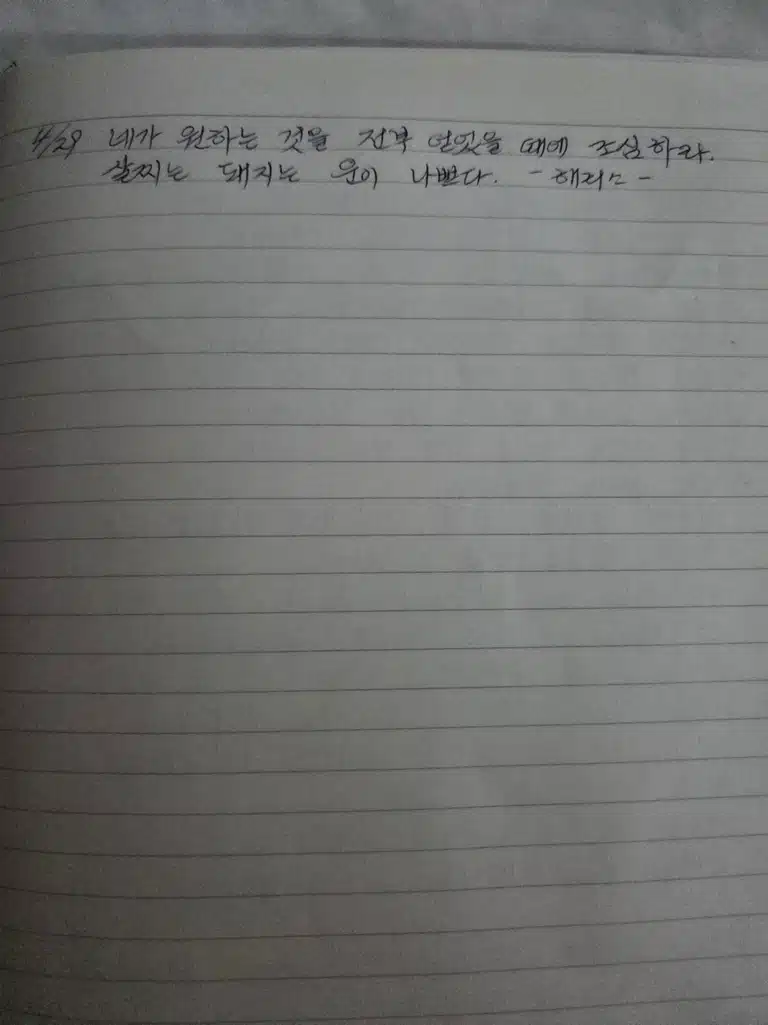 4/29 네가 원하는 것을 전부 얻었을 때에 조심하라.
살찌는 돼지는 운이 나쁘다. - 해리스 -